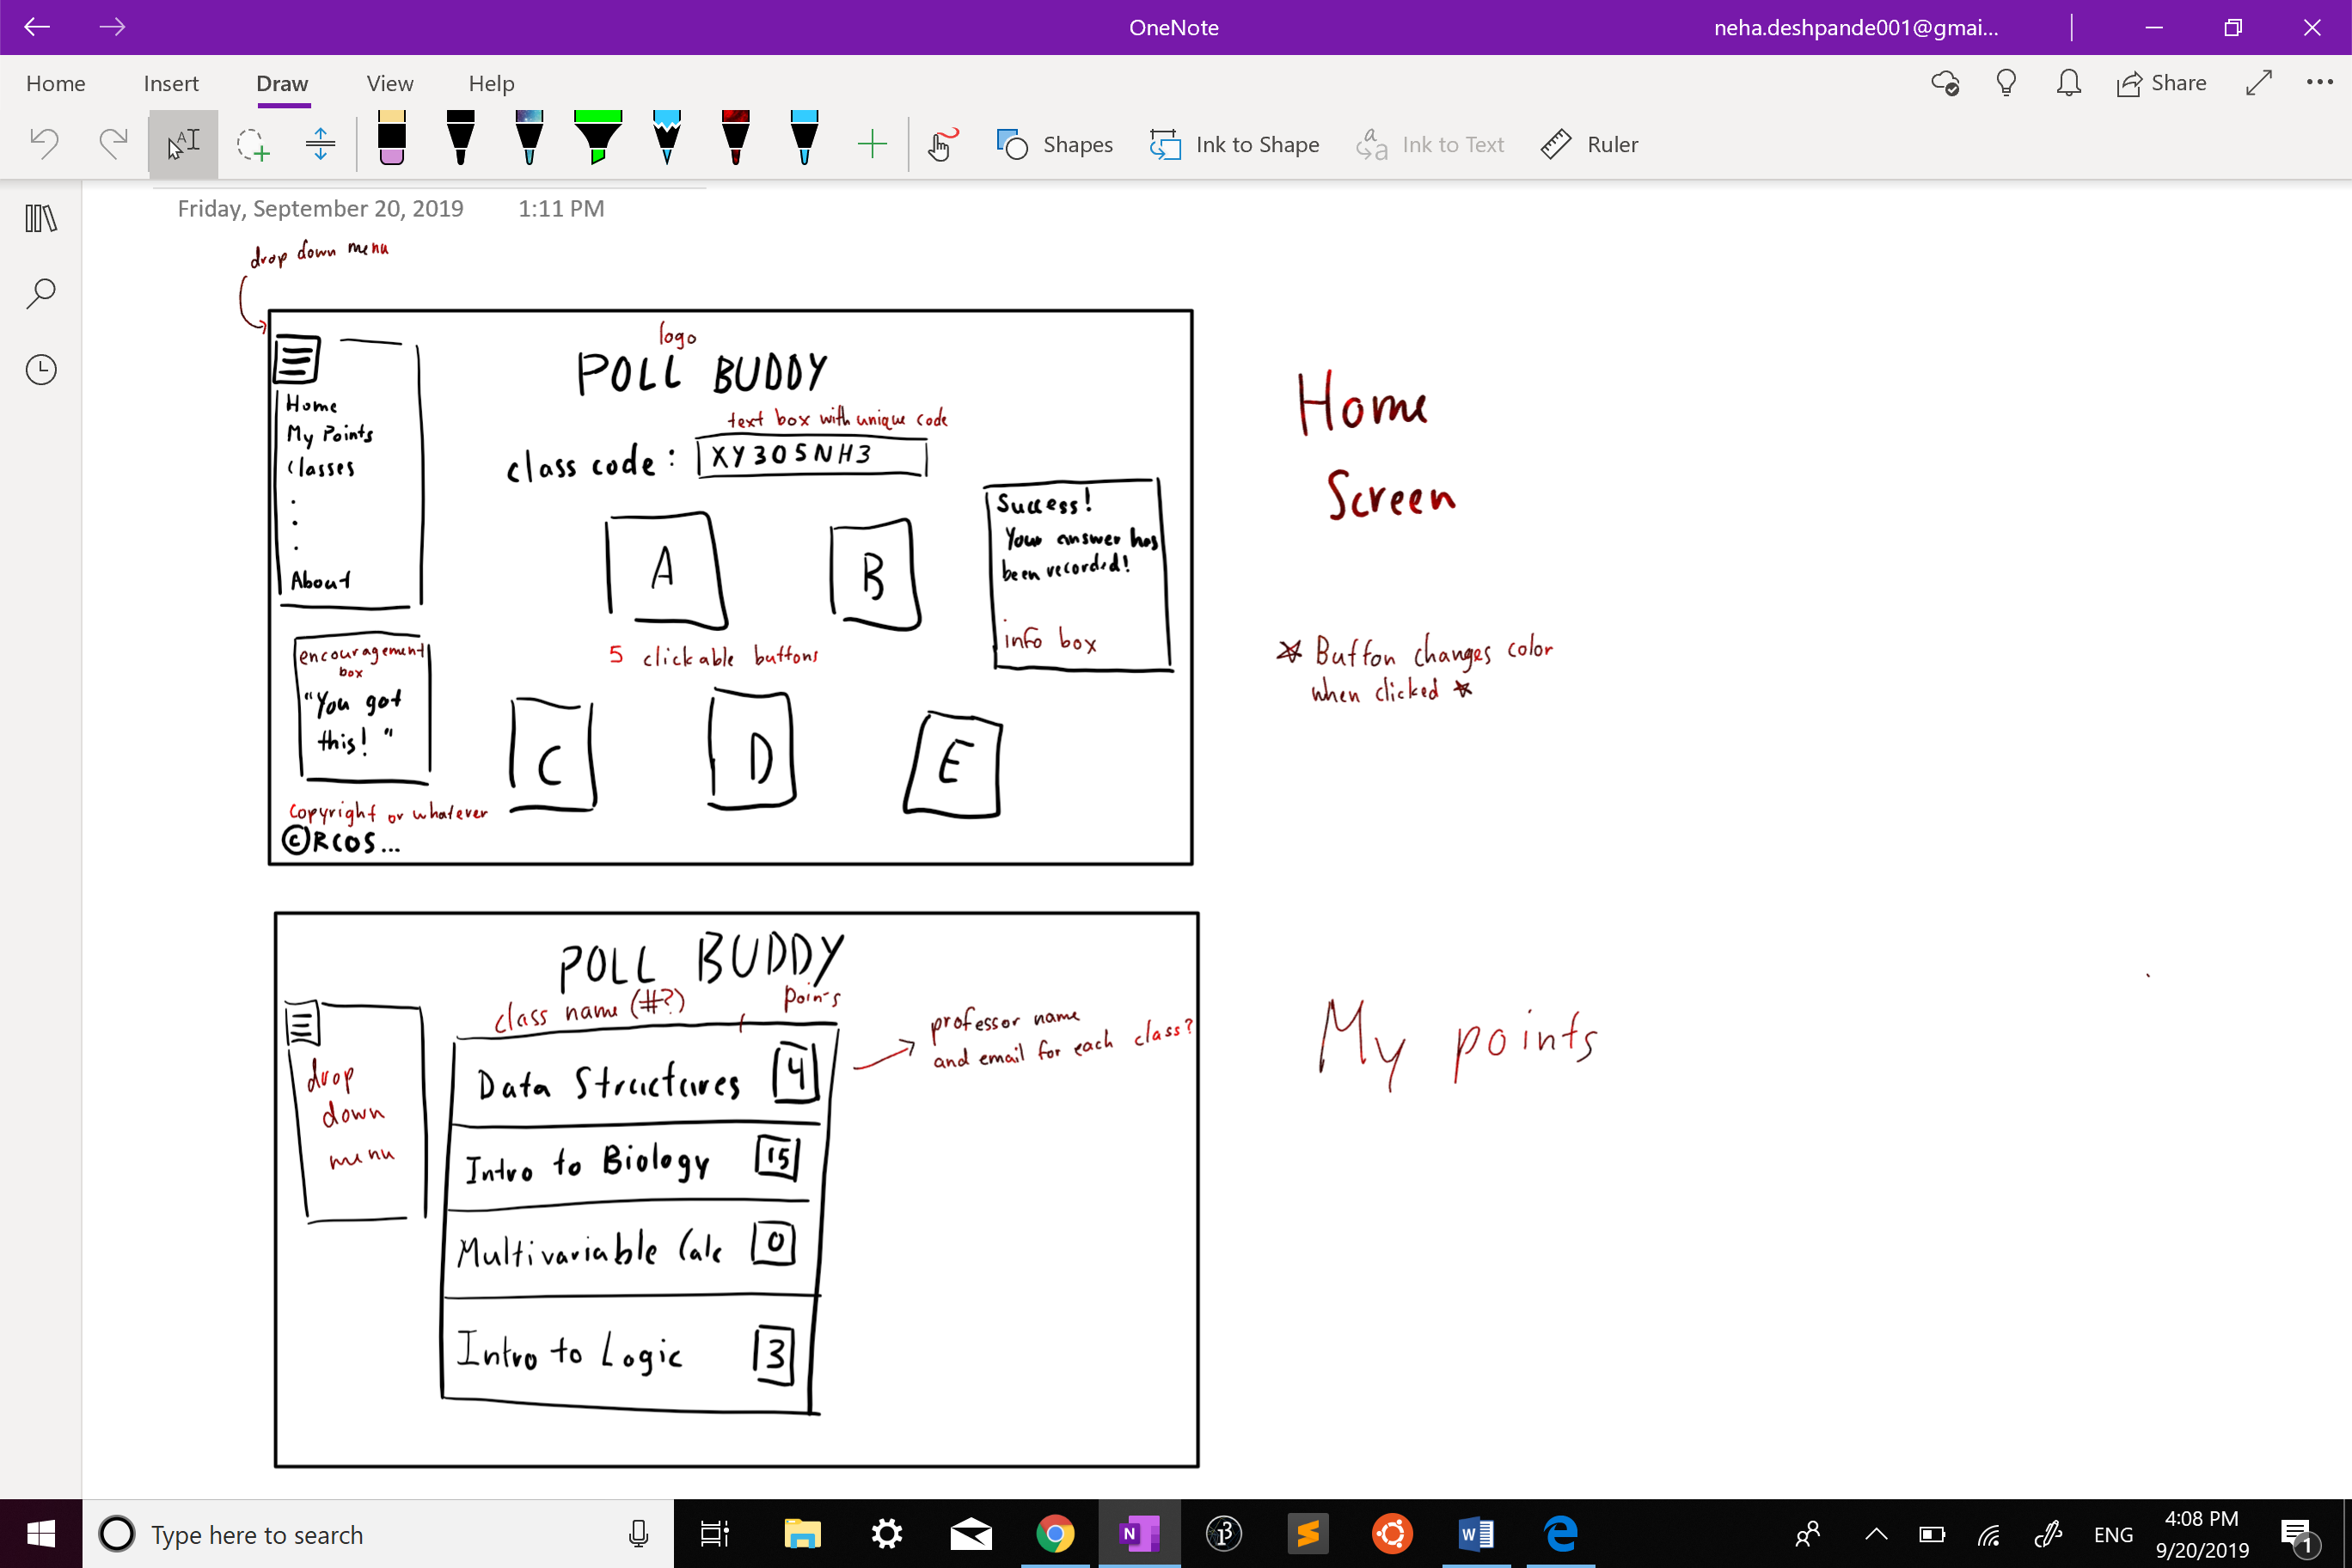 OneNote
neha.deshpande001@gmai...
Home Insert Draw View Help
Share
Shapes Ink to Shape Ink to Text Ruler
Friday, September 20, 2019 1:11 PM
drop down menu
logo
POLL BUDDY
text box with unique code
class code: XY305NH3
Home
My Points
Classes
.
.
.
About
A
B
5 clickable buttons
C
D
E
Success!
Your answer has
been recorded!
info box
encouragement
box
"You got
this!"
copyright or whatever
©RCOS...
Home
Screen
Button changes color
when clicked
POLL BUDDY
class name (#?) points
drop
down
menu
Data Structures 4
Intro to Biology 15
Multivariable Calc 0
Intro to Logic 3
professor name
and email for each class?
My points
Type here to search
ENG
4:08 PM
9/20/2019
1